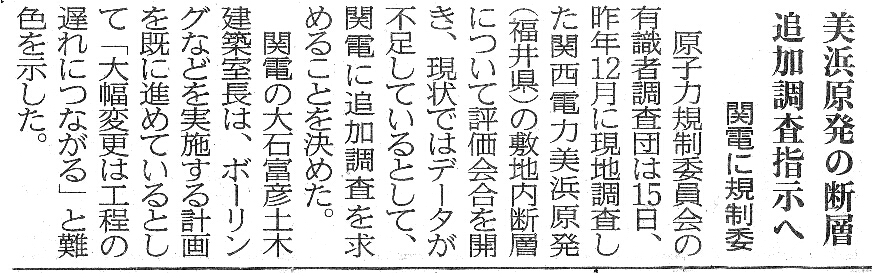 美浜原発の断層
追加調査指示へ
関電に規制委
原子力規制委員会の
有識者調査団は15日、
昨年12月に現地調査し
た関西電力美浜原発
（福井県）の敷地内断層
について評価会合を開
き、現状ではデータが
不足しているとして、
関電に追加調査を求
めることを決めた。
関電の大石富彦土木
建築室長は、ボーリン
グなどを実施する計画
を既に進めているとし
て「大幅変更は工程の
遅れにつながる」と難
色を示した。